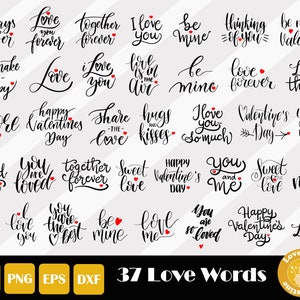 Love you forever
together forever
I love you
be mine
thinking of you
be
Love
I love you
Love is in air
be mine
love forever
happy Valentines Day
Share THE LOVE
hugs AND kisses
I love you so much
Valentine's Day
you are loved
together forever
Sweet love
HAPPY VALENTINE'S DAY
You and me
Sweet love
I love you
you are the best
be mine
love me
You are so loved
Happy Valentine's Day
PNG EPS DXF 37 Love Words